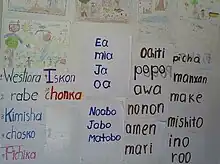 Westiora Iskon
rabe chonka
Kimisha
chosko
Pichika
Ea
mia
Ja
oa
Noobo
Jabo
Matobo
ochiti
popo
awa
nonon
amen
mari
picha
manxan
make
mishito
ino
roo